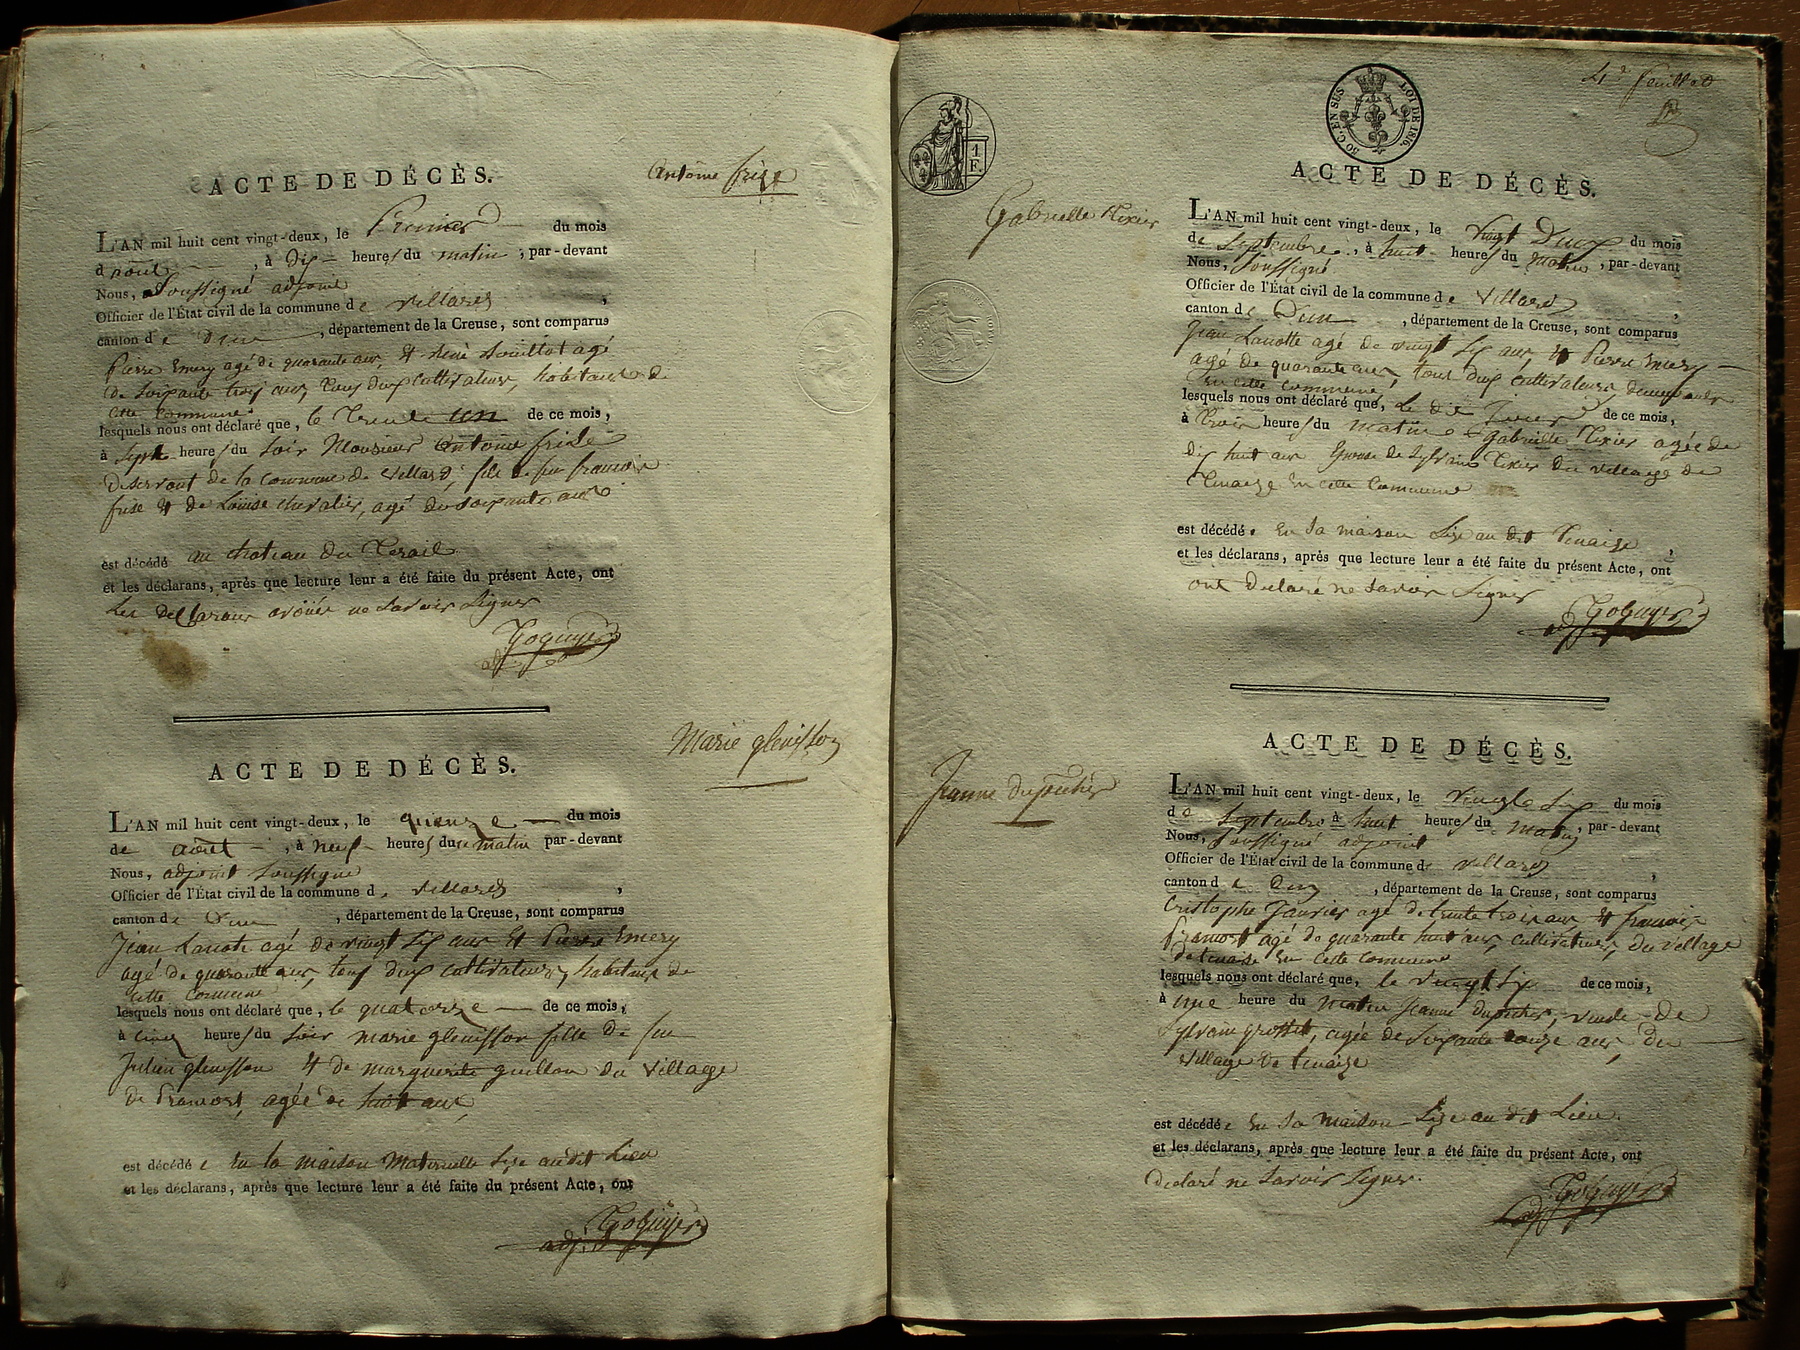 ACTE DE DÉCÈS.
Antoine frise
L'AN mil huit cent vingt-deux, le Premier du mois
d'aout, à dix heures du matin, par-devant
Nous, Soussigné adjoint
Officier de l'État civil de la commune de Villards,
canton de Dun, département de la Creuse, sont comparus
Pierre Emery agé de quarante ans, et agé
de soixante trois ans, tous deux cultivateurs, habitans de
cette commune
lesquels nous ont déclaré que, le trente un de ce mois,
à Sept heures du Soir Monsieur Antoine frise
Desservant de la commune de Villard, fils de feu francois
frise et de Louise chevalier, agé de soixante ans
est décédé au chateau du
et les déclarans, après que lecture leur a été faite du présent Acte, ont
Les Declarans avoués ne Savoir Signer
Goguyer
adj.
Marie glenisson
ACTE DE DÉCÈS.
L'AN mil huit cent vingt-deux, le quinze du mois
de aout, à neuf heures du matin par-devant
Nous, adjoint soussigné
Officier de l'État civil de la commune de Villards,
canton de Dun, département de la Creuse, sont comparus
Jean Lanote agé de vingt six ans et Pierre Emery
agé de quarante ans, tous deux cultivateurs, habitans de
cette commune
lesquels nous ont déclaré que, le quatorze de ce mois,
à cinq heures du Soir marie glenisson fille de feu
Julien glenisson et de marguerite guillon du village
de Pramort, agée de huit ans,
est décédée en la maison Maternelle Size audit Lieu
et les déclarans, après que lecture leur a été faite du présent Acte, ont
Goguyer
adj.
4e feuillet
50 C. EN SUS LOI DE 1816.
1 F.
Gabrielle Tixier
ACTE DE DÉCÈS.
L'AN mil huit cent vingt-deux, le vingt Deux du mois
de Septembre, à huit heures du matin, par-devant
Nous, Soussigné
Officier de l'État civil de la commune de Villards,
canton de Dun, département de la Creuse, sont comparus
Jean Lanotte agé de vingt six ans, et Pierre Emery
agé de quarante ans, tous deux cultivateurs, demeurants
en cette commune,
lesquels nous ont déclaré que, Le dit Jour de ce mois,
à trois heures du matin Gabrielle Tixier agée de
dix huit ans Epouse de Sylvains Tixier du village de
Tinaize en cette commune
est décédée en sa maison Size au dit Tinaize,
et les déclarans, après que lecture leur a été faite du présent Acte, ont
ont declaré ne Savoir Signer
Goguyer
adj.
Jeanne dupouthier
ACTE DE DÉCÈS.
L'AN mil huit cent vingt-deux, le vingt Six du mois
de Septembre à huit heures du matin, par-devant
Nous, Soussigné adjoint
Officier de l'État civil de la commune de Villards,
canton de Dun, département de la Creuse, sont comparus
Cristophe Janvier agé de trente trois ans et francois
Pramort agé de quarante huit ans, cultivateurs, du village
de tinaise en cette commune
lesquels nous ont déclaré que, le vingt Six de ce mois,
à une heure du matin Jeanne veuve de
Sylvain grosset, agée de Soixante ans, du
village de tinaize
est décédée en sa maison Size au dit Lieu.
et les déclarans, après que lecture leur a été faite du présent Acte, ont
declaré ne Savoir Signer.
Goguyer
adj.